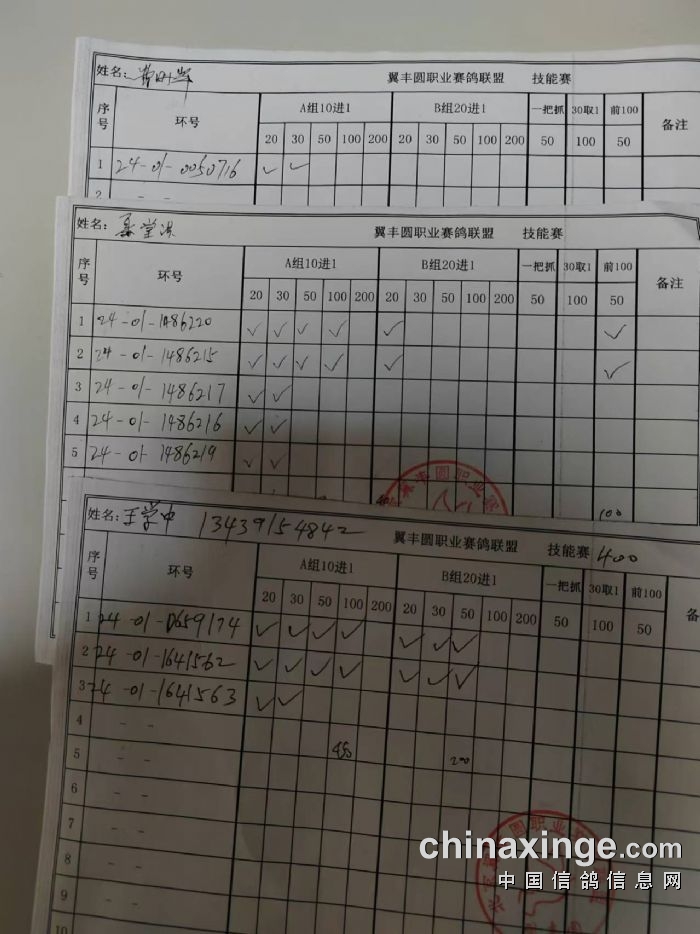 姓名: 翼丰圆职业赛鸽联盟 技能赛
序号 环号 A组10进1 B组20进1 一把抓 30取1 前100 备注
20 30 50 100 200 20 30 50 100 200 50 100 50
1 24-01-0050716 ✓ ✓
2
姓名: 聂堂洪 翼丰圆职业赛鸽联盟 技能赛
序号 环号 A组10进1 B组20进1 一把抓 30取1 前100 备注
20 30 50 100 200 20 30 50 100 200 50 100 50
1 24-01-1486220 ✓ ✓ ✓ ✓ ✓ ✓
2 24-01-1486215 ✓ ✓ ✓ ✓ ✓ ✓
3 24-01-1486217 ✓ ✓
4 24-01-1486216 ✓ ✓
5 24-01-1486219 ✓ ✓
丰圆职业赛
100
姓名: 王学中 13439154842 翼丰圆职业赛鸽联盟 技能赛 400
序号 环号 A组10进1 B组20进1 一把抓 30取1 前100 备
20 30 50 100 200 20 30 50 100 200 50 100 50
1 24-01-0659174 ✓ ✓ ✓ ✓ ✓ ✓ ✓
2 24-01-1641562 ✓ ✓ ✓ ✓ ✓ ✓ ✓
3 24-01-1641563 ✓ ✓
4 - -
5 - - 200
6 - -
7 - -
8 - -
9 - -
10
圆职业
chinaxinge.com
中国信鸽信息网